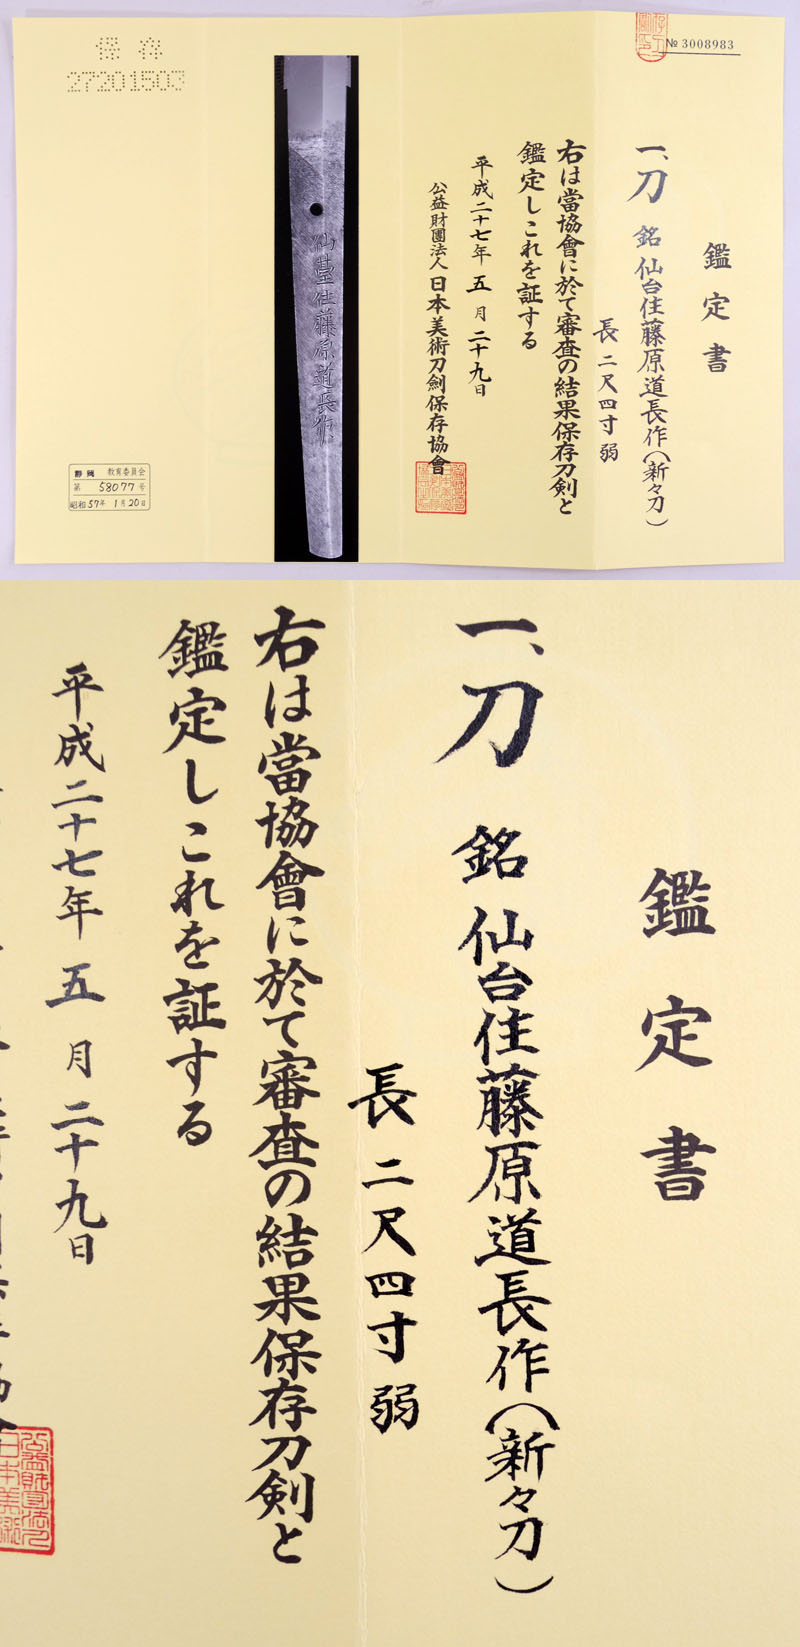 保存
27201503
№ 3008983
鑑定書
一、刀 銘 仙台住藤原道長作(新々刀)
長 二尺四寸弱
右は當協會に於て審査の結果保存刀剣と
鑑定しこれを証する
平成二十七年 五 月 二十九日
公益財團法人 日本美術刀劍保存協會
仙臺住藤原道長作
静岡 教育委員会
第 58077 号
昭和57年 1月20日
鑑定書
一、刀 銘 仙台住藤原道長作(新々刀)
長 二尺四寸弱
右は當協會に於て審査の結果保存刀剣と
鑑定しこれを証する
平成二十七年 五 月 二十九日